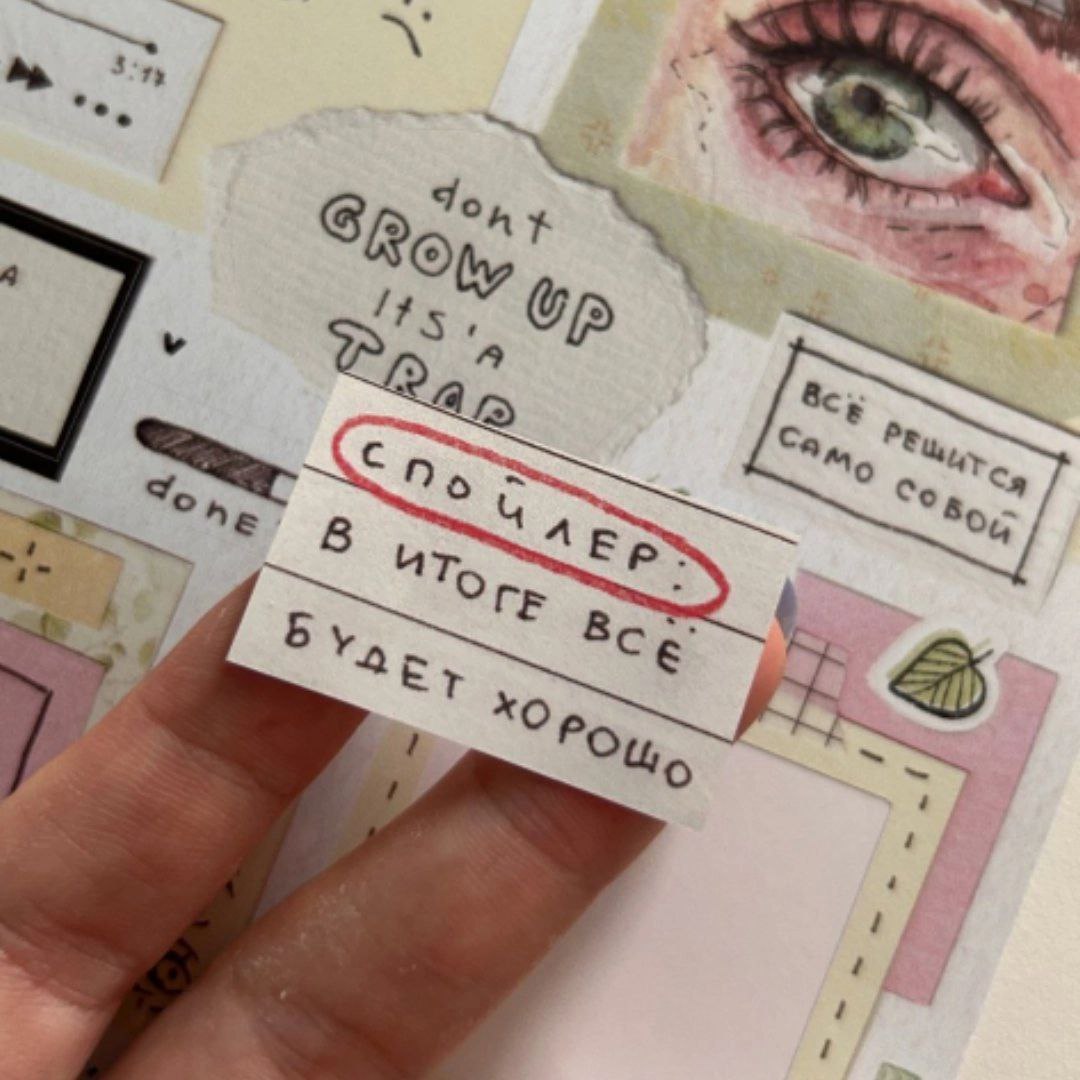 3:17
dont
GROW UP
ItS'A
TRAP
ВСЁ РЕШИТСЯ
САМО СОБОЙ
done
СПОЙЛЕР:
В ИТОГЕ ВСЁ
БУДЕТ ХОРОШО